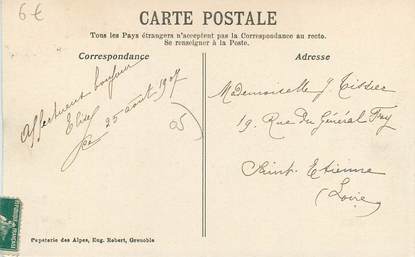 6€
CARTE POSTALE
Tous les Pays étrangers n'acceptent pas la Correspondance au recto.
Se renseigner à la Poste.
Correspondance
Affectueux bonjour
Elise
25 août 1907
05
Adresse
Mademoiselle J. Tissier
19. Rue du Général Foy
Saint-Etienne
(Loire)
Papeterie des Alpes, Eug. Robert, Grenoble